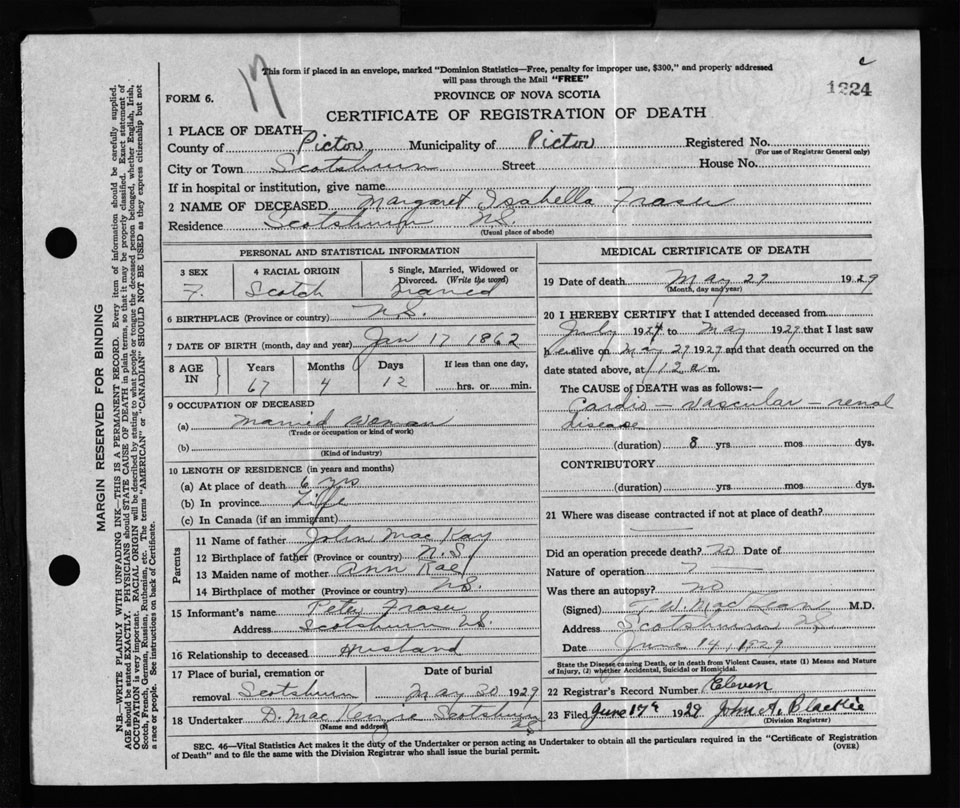 c
17
1224
This form if placed in an envelope, marked "Dominion Statistics—Free, penalty for improper use, $300," and properly addressed
will pass through the Mail "FREE"
FORM 6.
PROVINCE OF NOVA SCOTIA
CERTIFICATE OF REGISTRATION OF DEATH
1 PLACE OF DEATH—
County of Pictou Municipality of Pictou Registered No.
(For use of Registrar General only)
City or Town Scotsburn Street House No.
If in hospital or institution, give name
2 NAME OF DECEASED Margaret Isabella Fraser
Residence Scotsburn N.S.
(Usual place of abode)
PERSONAL AND STATISTICAL INFORMATION
3 SEX 4 RACIAL ORIGIN 5 Single, Married, Widowed or
Divorced. (Write the word)
F. Scotch Married
6 BIRTHPLACE (Province or country) N.S.
7 DATE OF BIRTH (month, day and year) Jan 17 1862
8 AGE IN Years Months Days If less than one day,
67 4 12 hrs. or min.
9 OCCUPATION OF DECEASED
(a) Married Woman
(Trade or occupation or kind of work)
(b)
(Kind of industry)
10 LENGTH OF RESIDENCE (in years and months)
(a) At place of death 6 yrs
(b) In province Life
(c) In Canada (if an immigrant)
Parents
11 Name of father John MacKay
12 Birthplace of father (Province or country) N.S.
13 Maiden name of mother Ann Rae
14 Birthplace of mother (Province or country) N.S.
15 Informant's name Peter Fraser
Address Scotsburn N.S.
16 Relationship to deceased Husband
17 Place of burial, cremation or Date of burial
removal Scotsburn May 30 1929
18 Undertaker D. MacKenzie Scotsburn N.S.
(Name and address)
MEDICAL CERTIFICATE OF DEATH
19 Date of death May 29 1929
(Month, day and year)
20 I HEREBY CERTIFY that I attended deceased from
July 1924 to May 1929 that I last saw
her alive on May 29 1929 and that death occurred on the
date stated above, at 12 a m.
The CAUSE of DEATH was as follows:—
Cardio – vascular – renal
disease
(duration) 8 yrs. mos. dys.
CONTRIBUTORY
(duration) yrs. mos. dys.
21 Where was disease contracted if not at place of death?
Did an operation precede death? no Date of
Nature of operation
Was there an autopsy? no
(Signed) T. W. MacLean M.D.
Address Scotsburn N.S.
Date June 14, 1929
State the Disease causing Death, or in death from Violent Causes, state (1) Means and Nature
of Injury, (2) whether Accidental, Suicidal or Homicidal.
22 Registrar's Record Number Eleven
23 Filed June 17th 1929 John A. Blackie
(Division Registrar)
SEC. 46—Vital Statistics Act makes it the duty of the Undertaker or person acting as Undertaker to obtain all the particulars required in the "Certificate of Registration
of Death" and to file the same with the Division Registrar who shall issue the burial permit.
(OVER)
MARGIN RESERVED FOR BINDING
N.B.—WRITE PLAINLY WITH UNFADING INK—THIS IS A PERMANENT RECORD. Every item of information should be carefully supplied.
AGE should be stated EXACTLY. PHYSICIANS should STATE CAUSE OF DEATH in plain terms, so that it may be properly classified. Exact statement of
OCCUPATION is very important. RACIAL ORIGIN will be described by stating to what people or tongue the deceased person belonged, whether English, Irish,
Scotch, French, German, Russian, Ruthenian, etc. The terms "AMERICAN" or "CANADIAN" SHOULD NOT BE USED as they express citizenship but not
a race or people. See instructions on back of Certificate.